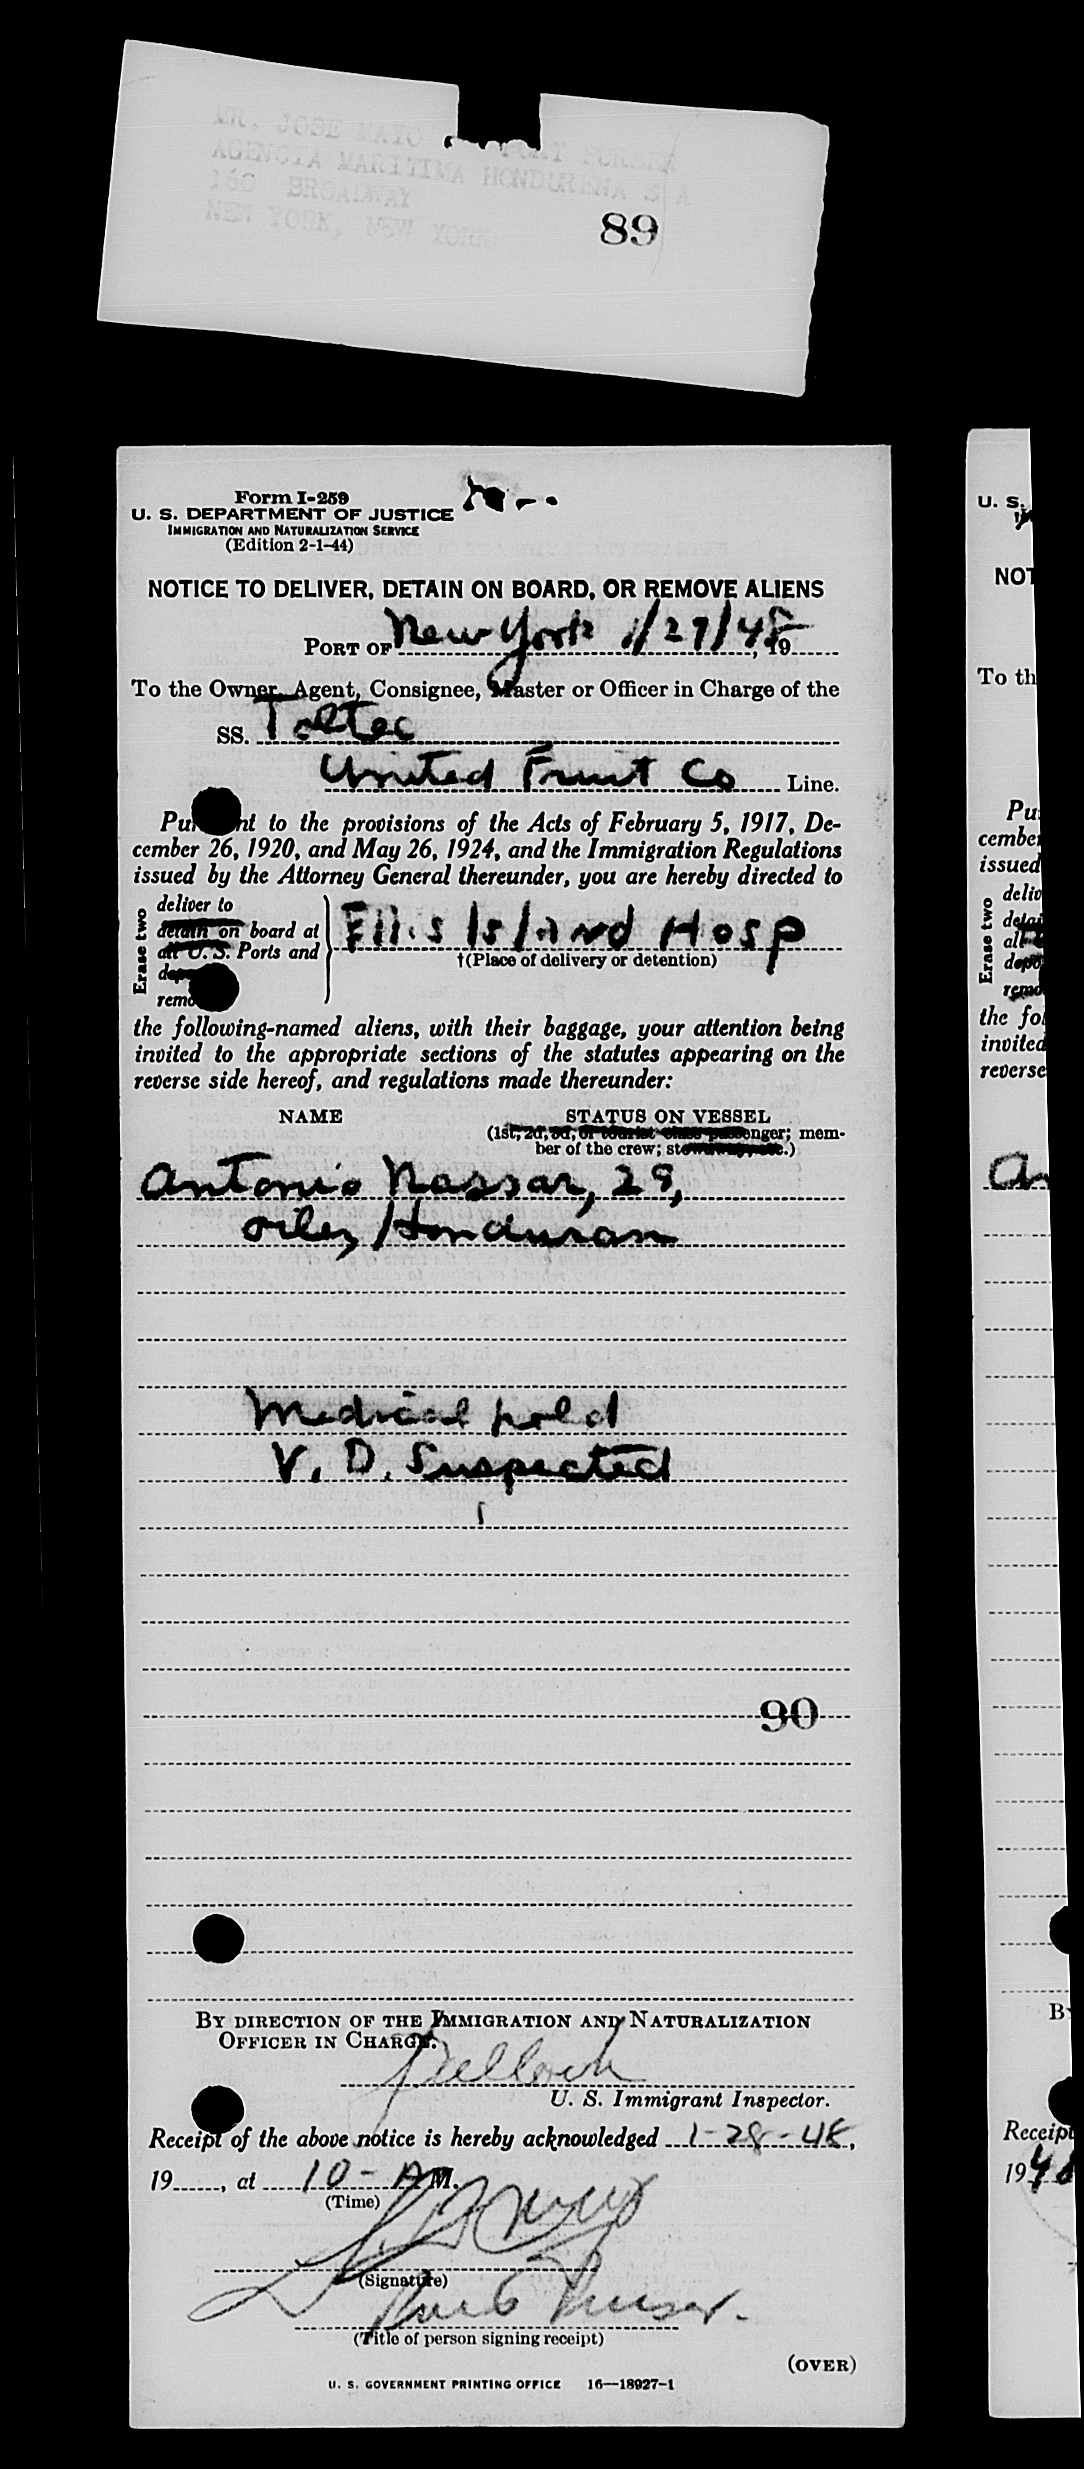 MR. JOSE MAYO PORT PURSER
AGENCIA MARITIMA HONDURENA S A
160 BROADWAY
NEW YORK, NEW YORK
89
Form I-259
U. S. DEPARTMENT OF JUSTICE
IMMIGRATION AND NATURALIZATION SERVICE
(Edition 2-1-44)
NOTICE TO DELIVER, DETAIN ON BOARD, OR REMOVE ALIENS
PORT OF New York 1/27/48, 19
To the Owner, Agent, Consignee, Master or Officer in Charge of the
SS. Toltec
United Fruit Co Line.
Pur nt to the provisions of the Acts of February 5, 1917, De-
cember 26, 1920, and May 26, 1924, and the Immigration Regulations
issued by the Attorney General thereunder, you are hereby directed to
Erase two
deliver to
detain on board at
all U. S. Ports and
remo
Ellis Island Hosp
†(Place of delivery or detention)
the following-named aliens, with their baggage, your attention being
invited to the appropriate sections of the statutes appearing on the
reverse side hereof, and regulations made thereunder:
NAME STATUS ON VESSEL
(1st, 2d, 3d, or tourist class passenger; mem-
ber of the crew; stowaway, etc.)
Antonio Nassar, 29,
oiler, Honduran
Medical hold
V. D. Suspected
90
BY DIRECTION OF THE IMMIGRATION AND NATURALIZATION
OFFICER IN CHARGE.
U. S. Immigrant Inspector.
Receipt of the above notice is hereby acknowledged 1-28-48,
19, at 10- AM.
(Time)
(Signature)
(Title of person signing receipt)
(OVER)
U. S. GOVERNMENT PRINTING OFFICE 16—18927-1
U. S.
NOT
To th
Pu
cember
issued
Erase two
deliv
detai
all
depo
remo
the fol
invited
reverse
An
B
Receipt
1948